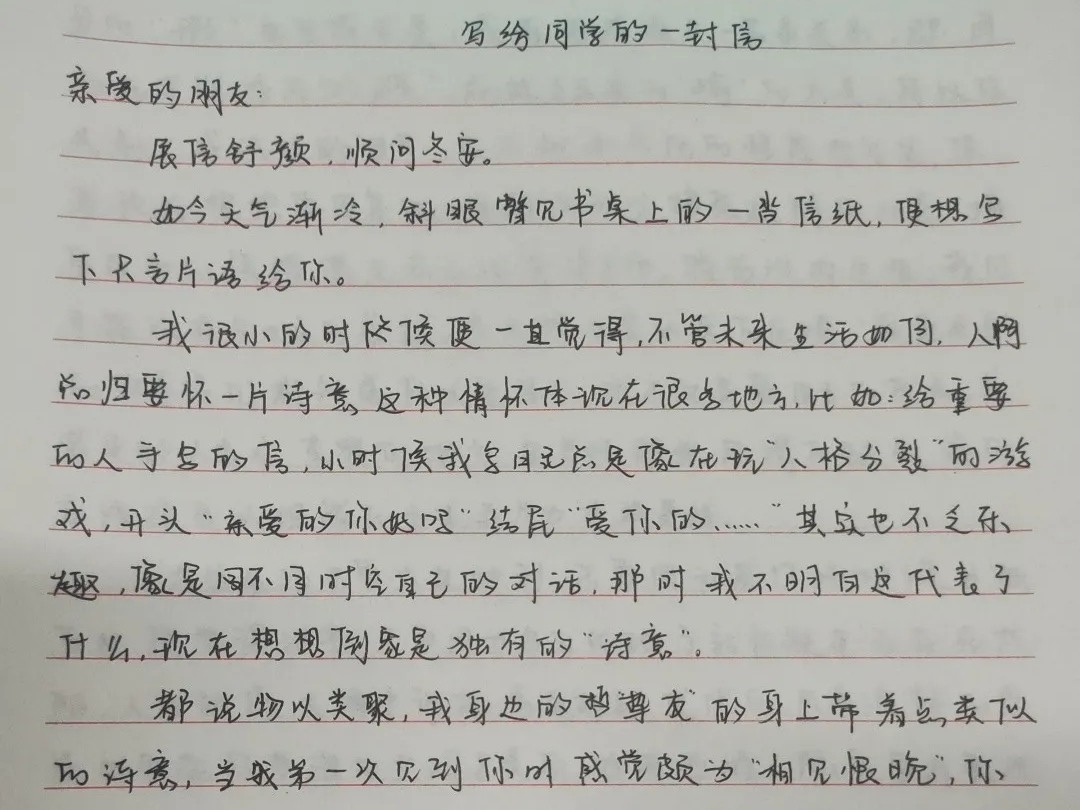 写给同学的一封信
亲爱的朋友：
展信舒颜，顺问冬安。
如今天气渐冷，斜眼瞥见书桌上的一沓信纸，便想写
下只言片语给你。
我很小的时候便一直觉得，不管未来生活如何，人啊
总归要怀一片诗意 这种情怀体现在很多地方，比如：给重要
的人手写的信，小时候我写日记总是像在玩“人格分裂”的游
戏，开头“亲爱的你好吗”结尾“爱你的……”其实也不乏乐
趣，像是同不同时空自己的对话，那时我不明白这代表了
什么，现在想想倒象是独有的“诗意”。
都说物以类聚，我身边的“尊友”的身上带着点类似
的诗意，当我第一次见到你时感觉颇为“相见恨晚”，你